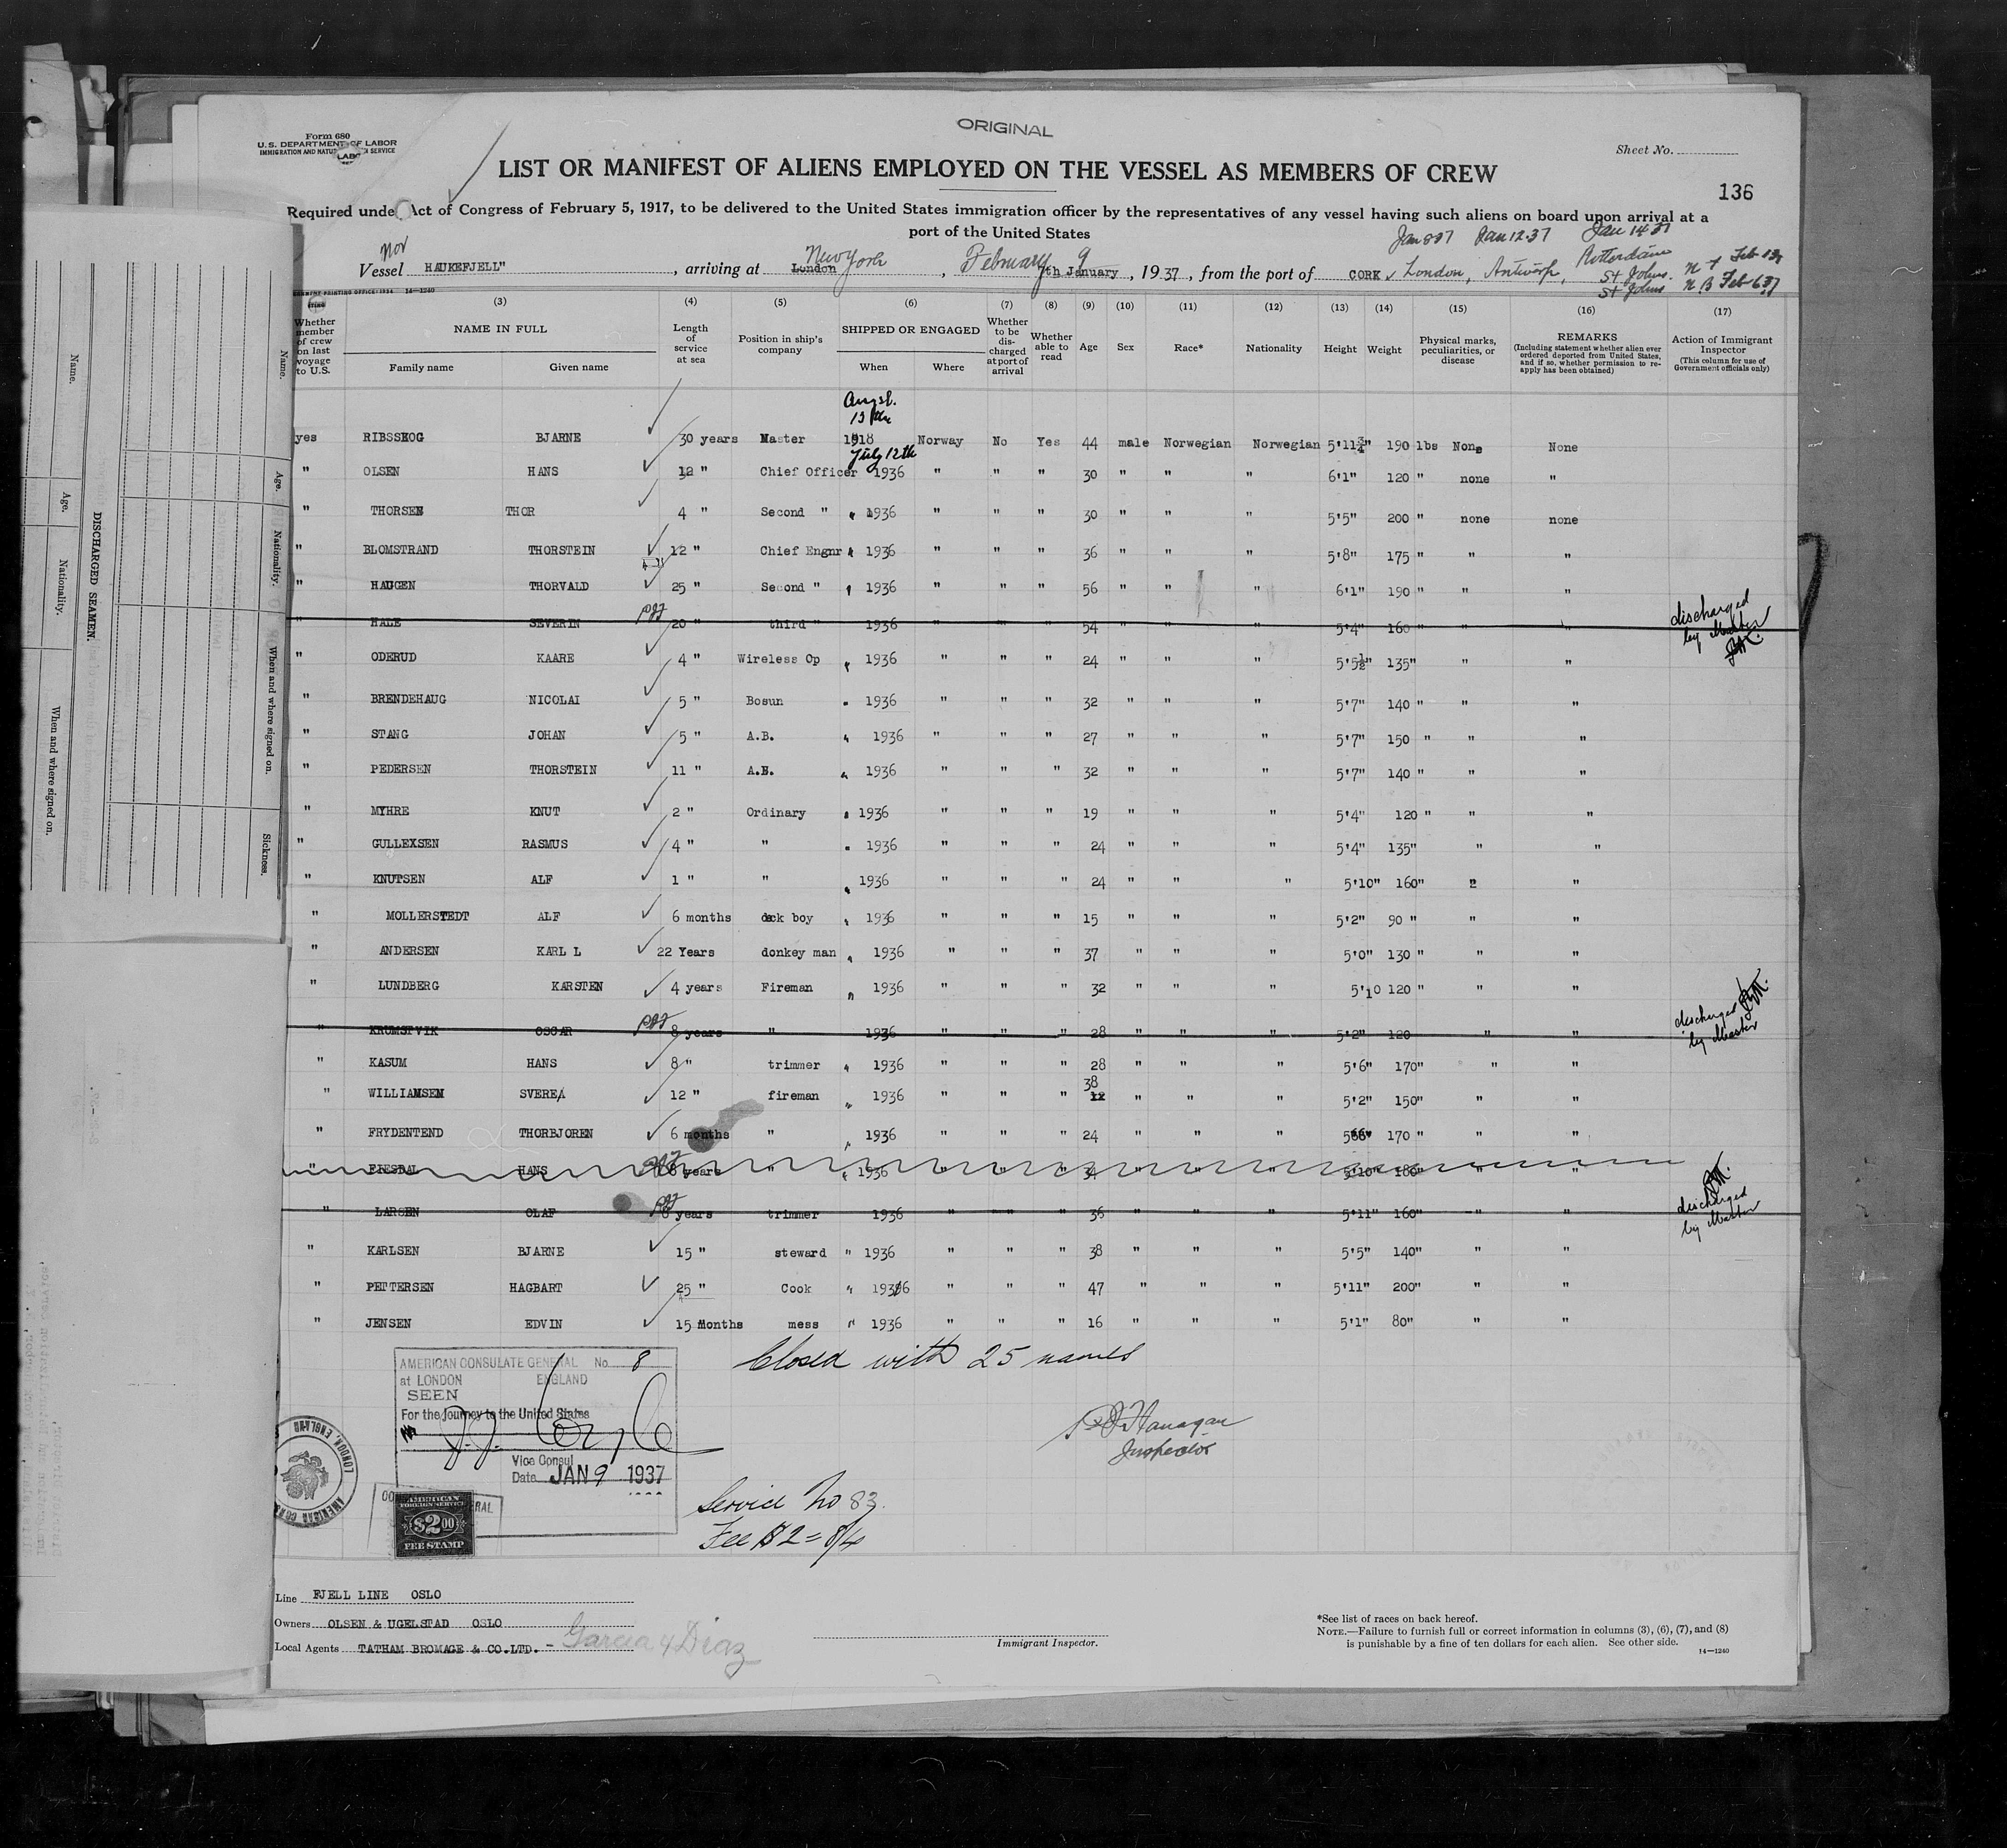 ORIGINAL
Form 680
U.S. DEPARTMENT OF LABOR
IMMIGRATION AND NATU SERVICE
LABO
Sheet No.
LIST OR MANIFEST OF ALIENS EMPLOYED ON THE VESSEL AS MEMBERS OF CREW
136
Required under Act of Congress of February 5, 1917, to be delivered to the United States immigration officer by the representatives of any vessel having such aliens on board upon arrival at a
port of the United States
Jan 8 37 Jan 12 37 Jan 14 37
Nor
Vessel HAUKEFJELL" , arriving at London New York , February 9 7th January , 1937 , from the port of CORK London, Antwerp, Rotterdam
St Johns. N F Feb
St Johns N B Feb 6 37
(3) (4) (5) (6) (7) (8) (9) (10) (11) (12) (13) (14) (15) (16) (17)
Whether member of crew on last voyage to U.S.
NAME IN FULL
Family name Given name
Length of service at sea
Position in ship's company
SHIPPED OR ENGAGED
When Where
Whether to be discharged at port of arrival
Whether able to read
Age Sex Race* Nationality Height Weight
Physical marks, peculiarities, or disease
REMARKS
(Including statement whether alien ever ordered deported from United States, and if so, whether permission to reapply has been obtained)
Action of Immigrant Inspector
(This column for use of Government officials only)
Augst.
13th
yes RIBSSKOG BJARNE 30 years Master 1918 Norway No Yes 44 male Norwegian Norwegian 5'11¾" 190 lbs None None
July 12th
" OLSEN HANS 12 " Chief Officer 1936 " " " 30 " " " 6'1" 120 " none "
" THORSEN THOR 4 " Second " " 1936 " " " 30 " " " 5'5" 200 " none none
" BLOMSTRAND THORSTEIN 12 " Chief Engnr " 1936 " " " 36 " " " 5'8" 175 " " "
" HAUGEN THORVALD 25 " Second " " 1936 " " " 56 " " " 6'1" 190 " " "
" HALE SEVERIN 20 " third " 1936 " " " 54 " " " 5'4" 160 " " " discharged by Master
" ODERUD KAARE 4 " Wireless Op " 1936 " " " 24 " " " 5'5½" 135" " "
" BRENDEHAUG NICOLAI 5 " Bosun " 1936 " " " 32 " " " 5'7" 140 " " "
" STANG JOHAN 5 " A.B. " 1936 " " " 27 " " " 5'7" 150 " " "
" PEDERSEN THORSTEIN 11 " A.B. " 1936 " " " 32 " " " 5'7" 140 " " "
" MYHRE KNUT 2 " Ordinary " 1936 " " " 19 " " " 5'4" 120 " " "
" GULLEXSEN RASMUS 4 " " " 1936 " " " 24 " " " 5'4" 135" " "
" KNUTSEN ALF 1 " " " 1936 " " " 24 " " " 5'10" 160" " "
" MOLLERSTEDT ALF 6 months deck boy " 1936 " " " 15 " " " 5'2" 90 " " "
" ANDERSEN KARL L 22 Years donkey man " 1936 " " " 37 " " " 5'0" 130 " " "
" LUNDBERG KARSTEN 4 years Fireman " 1936 " " " 32 " " " 5'10 120 " " "
" KRUMSTVIK OSCAR 8 years " 1936 " " " 28 " " " 5'2" 120 " " discharged by Master
" KASUM HANS 8 " trimmer " 1936 " " " 28 " " " 5'6" 170" " "
" WILLIAMSEN SVERE 12 " fireman " 1936 " " " 38 " " " 5'2" 150" " "
" FRYDENTEND THORBJOREN 6 months " " 1936 " " " 24 " " " 5'6" 170 " " "
" HANS 8 years " " 1936 " " " " " " 5'10" 180" " "
" LARSEN OLAF 8 years trimmer 1936 " " " 36 " " " 5'11" 160" " " discharged by Master
" KARLSEN BJARNE 15 " steward " 1936 " " " 38 " " " 5'5" 140" " "
" PETTERSEN HAGBART 25 " Cook " 1936 " " " 47 " " " 5'11" 200" " "
" JENSEN EDVIN 15 Months mess " 1936 " " " 16 " " " 5'1" 80" " "
Closed with 25 names
Flanagan
Inspector
AMERICAN CONSULATE GENERAL No. 8
at LONDON ENGLAND
SEEN
For the journey to the United States
Vice Consul
Date JAN 9 1937
LONDON, ENGLAND
AMERICAN
AMERICAN
FOREIGN SERVICE
$2.00
FEE STAMP
Service No 83.
Fee $2 = 8/4
Line FJELL LINE OSLO
Owners OLSEN & UGELSTAD OSLO
Local Agents TATHAM BROMAGE & CO.LTD. - Garcia y Diaz
Immigrant Inspector.
*See list of races on back hereof.
NOTE.—Failure to furnish full or correct information in columns (3), (6), (7), and (8)
is punishable by a fine of ten dollars for each alien. See other side.
14—1240
DISCHARGED SEAMEN.
Name. Age. Nationality. When and where signed on.
Name. Age. Nationality. When and where signed on. Sickness.